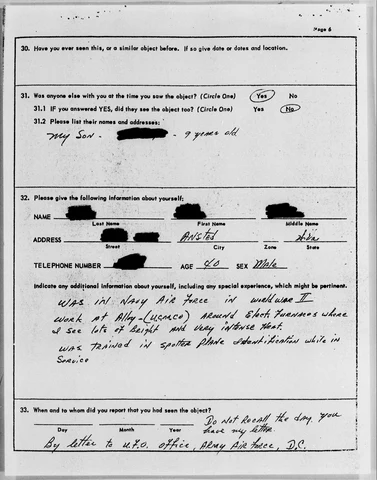 Page 6
30. Have you ever seen this, or a similar object before. If so give date or dates and location.
31. Was anyone else with you at the time you saw the object? (Circle One) Yes No
31.1 IF you answered YES, did they see the object too? (Circle One) Yes No
31.2 Please list their names and addresses:
My Son - - 9 years old
32. Please give the following information about yourself:
NAME
Last Name First Name Middle Name
ADDRESS ANSTED
Street City Zone State
TELEPHONE NUMBER AGE 40 SEX Male
Indicate any additional information about yourself, including any special experience, which might be pertinent.
WAS in NAVY AIR FORCE in world war II
WORK at Alloy - (U.C.M.CO) AROUND Elect. FURNACES where
I see lots of Bright and very intense Heat.
WAS TRAINED in SPOTTER PLANE identification while in
Service
33. When and to whom did you report that you had seen the object?
Do not Recall the day, you
have my letter.
Day Month Year
By letter to U.F.O. office, Army Air Force, D.C.